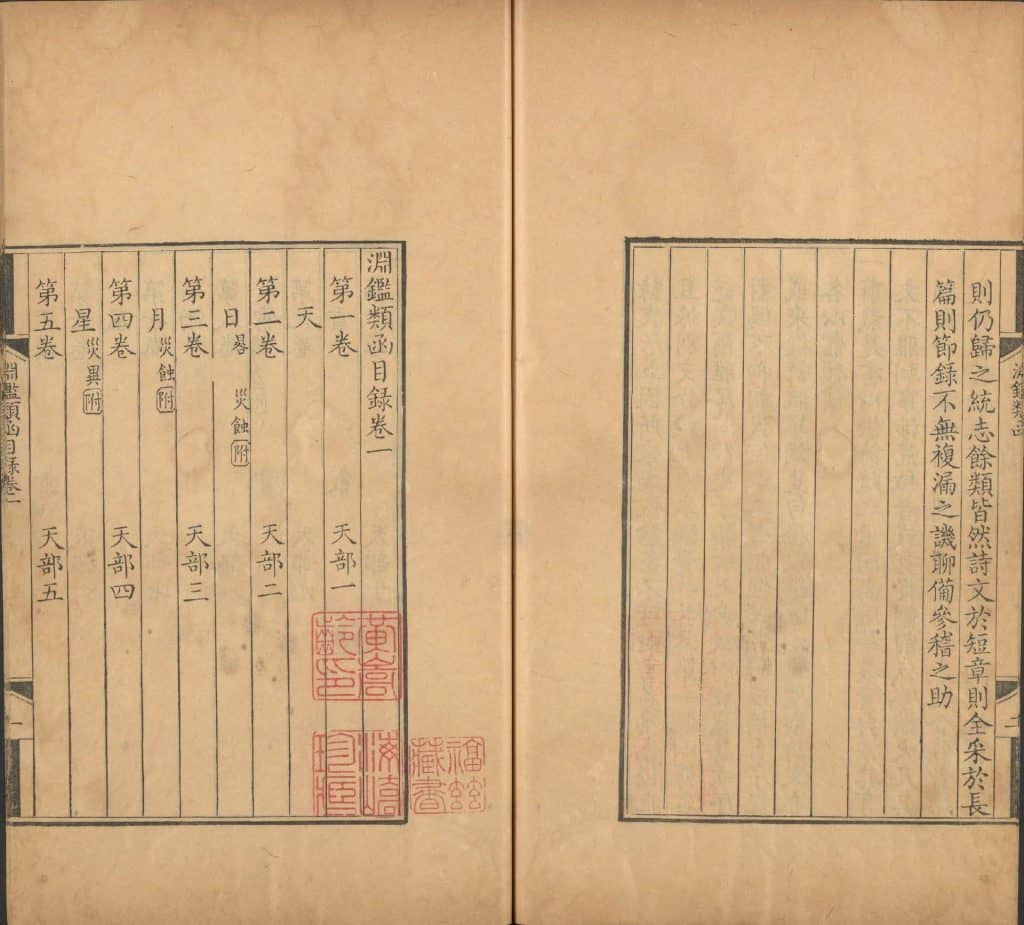 則仍歸之統志餘類皆然詩文於短章則全采於長
篇則節録不無複漏之譏聊備參稽之助
淵鑑類函
二
淵鑑類函目録卷一
第一卷 天部一
天
第二卷 天部二
日晷 災蝕附
第三卷 天部三
月災蝕附
第四卷 天部四
星災異附
第五卷 天部五
淵鑑類函目録卷一
一
福茲
藏書